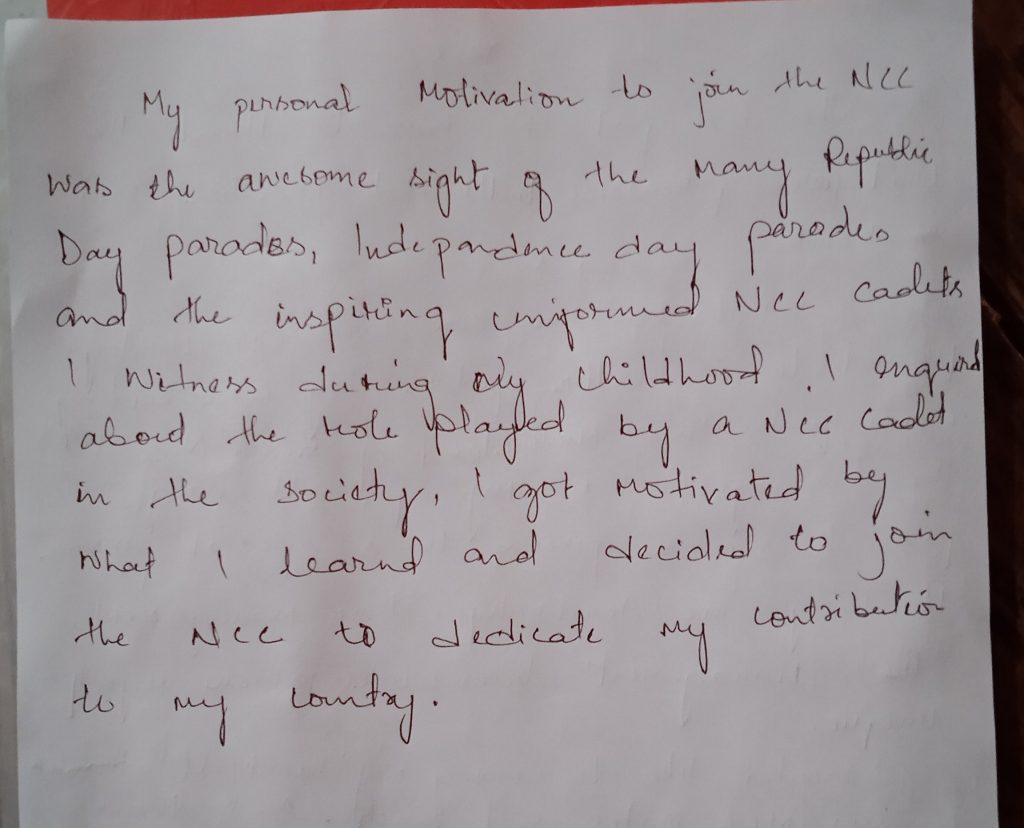 My personal Motivation to join the NCC
was the awesome sight of the many Republic
Day parades, Independence day parades
and the inspiring uniformed NCC cadets
I witness during my childhood. I enquird
aboud the role played by a NCC cadet
in the society, I got motivated by
what I learnd and decided to join
the NCC to dedicate my contribution
to my country.